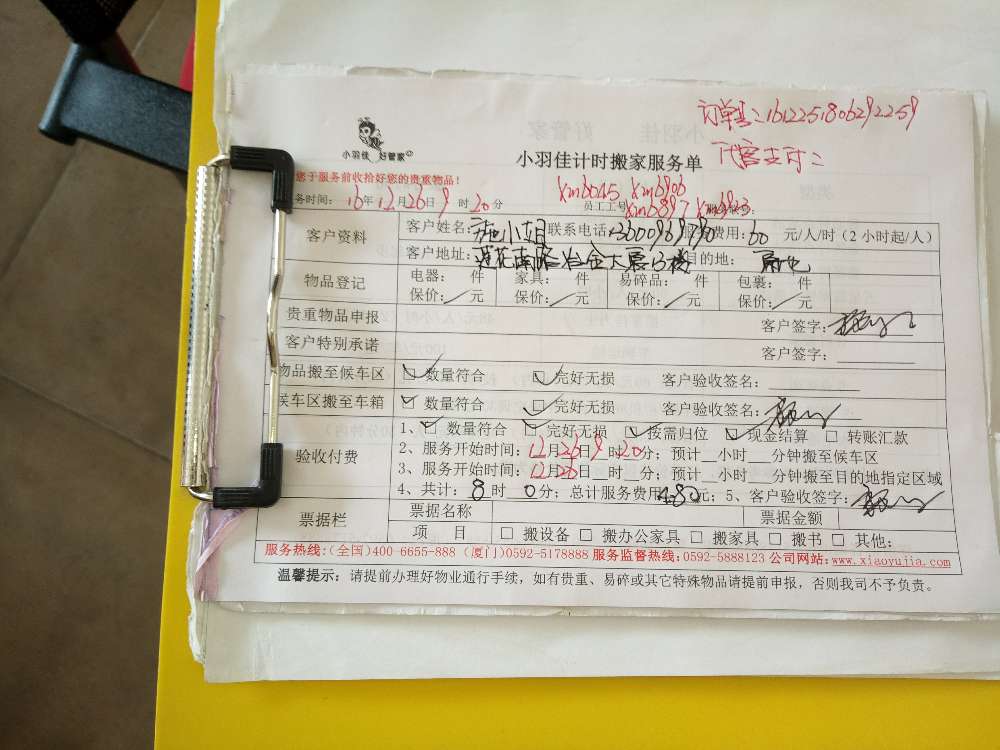 订单号:1612251806292259
小羽佳 好管家
小羽佳计时搬家服务单
您于服务前收拾好您的贵重物品!
务时间:16年12月26日9时20分 员工工号 xm6045 xm6906
客户资料 客户姓名: 小姐 联系电话: 服务费用:60元/人/时(2小时起/人)
客户地址:莲花南路冶金大厦 目的地:
物品登记 电器: 件 家具: 件 易碎品: 件 包裹: 件
保价:/元 保价:/元 保价:/元 保价:/元
贵重物品申报 客户签字:
客户特别承诺 客户签字:
物品搬至候车区 ☑数量符合 ☑完好无损 客户验收签名:
候车区搬至车箱 ☑数量符合 ☑完好无损 客户验收签名:
验收付费 1、☑数量符合 ☑完好无损 ☑按需归位 ☑现金结算 □转账汇款
2、服务开始时间:12月26日9时20分;预计__小时__分钟搬至候车区
3、服务开始时间:12月26日__时__分;预计__小时__分钟搬至目的地指定区域
4、共计:8时0分;总计服务费用480元;5、客户验收签字:
票据栏 票据名称 票据金额
项 目 □搬设备 □搬办公家具 □搬家具 □搬书 □其他:
服务热线:(全国)400-6655-888 (厦门)0592-5178888 服务监督热线:0592-5888123 公司网站:www.xiaoyujia.com
温馨提示:请提前办理好物业通行手续,如有贵重、易碎或其它特殊物品请提前申报,否则我司不予负责。